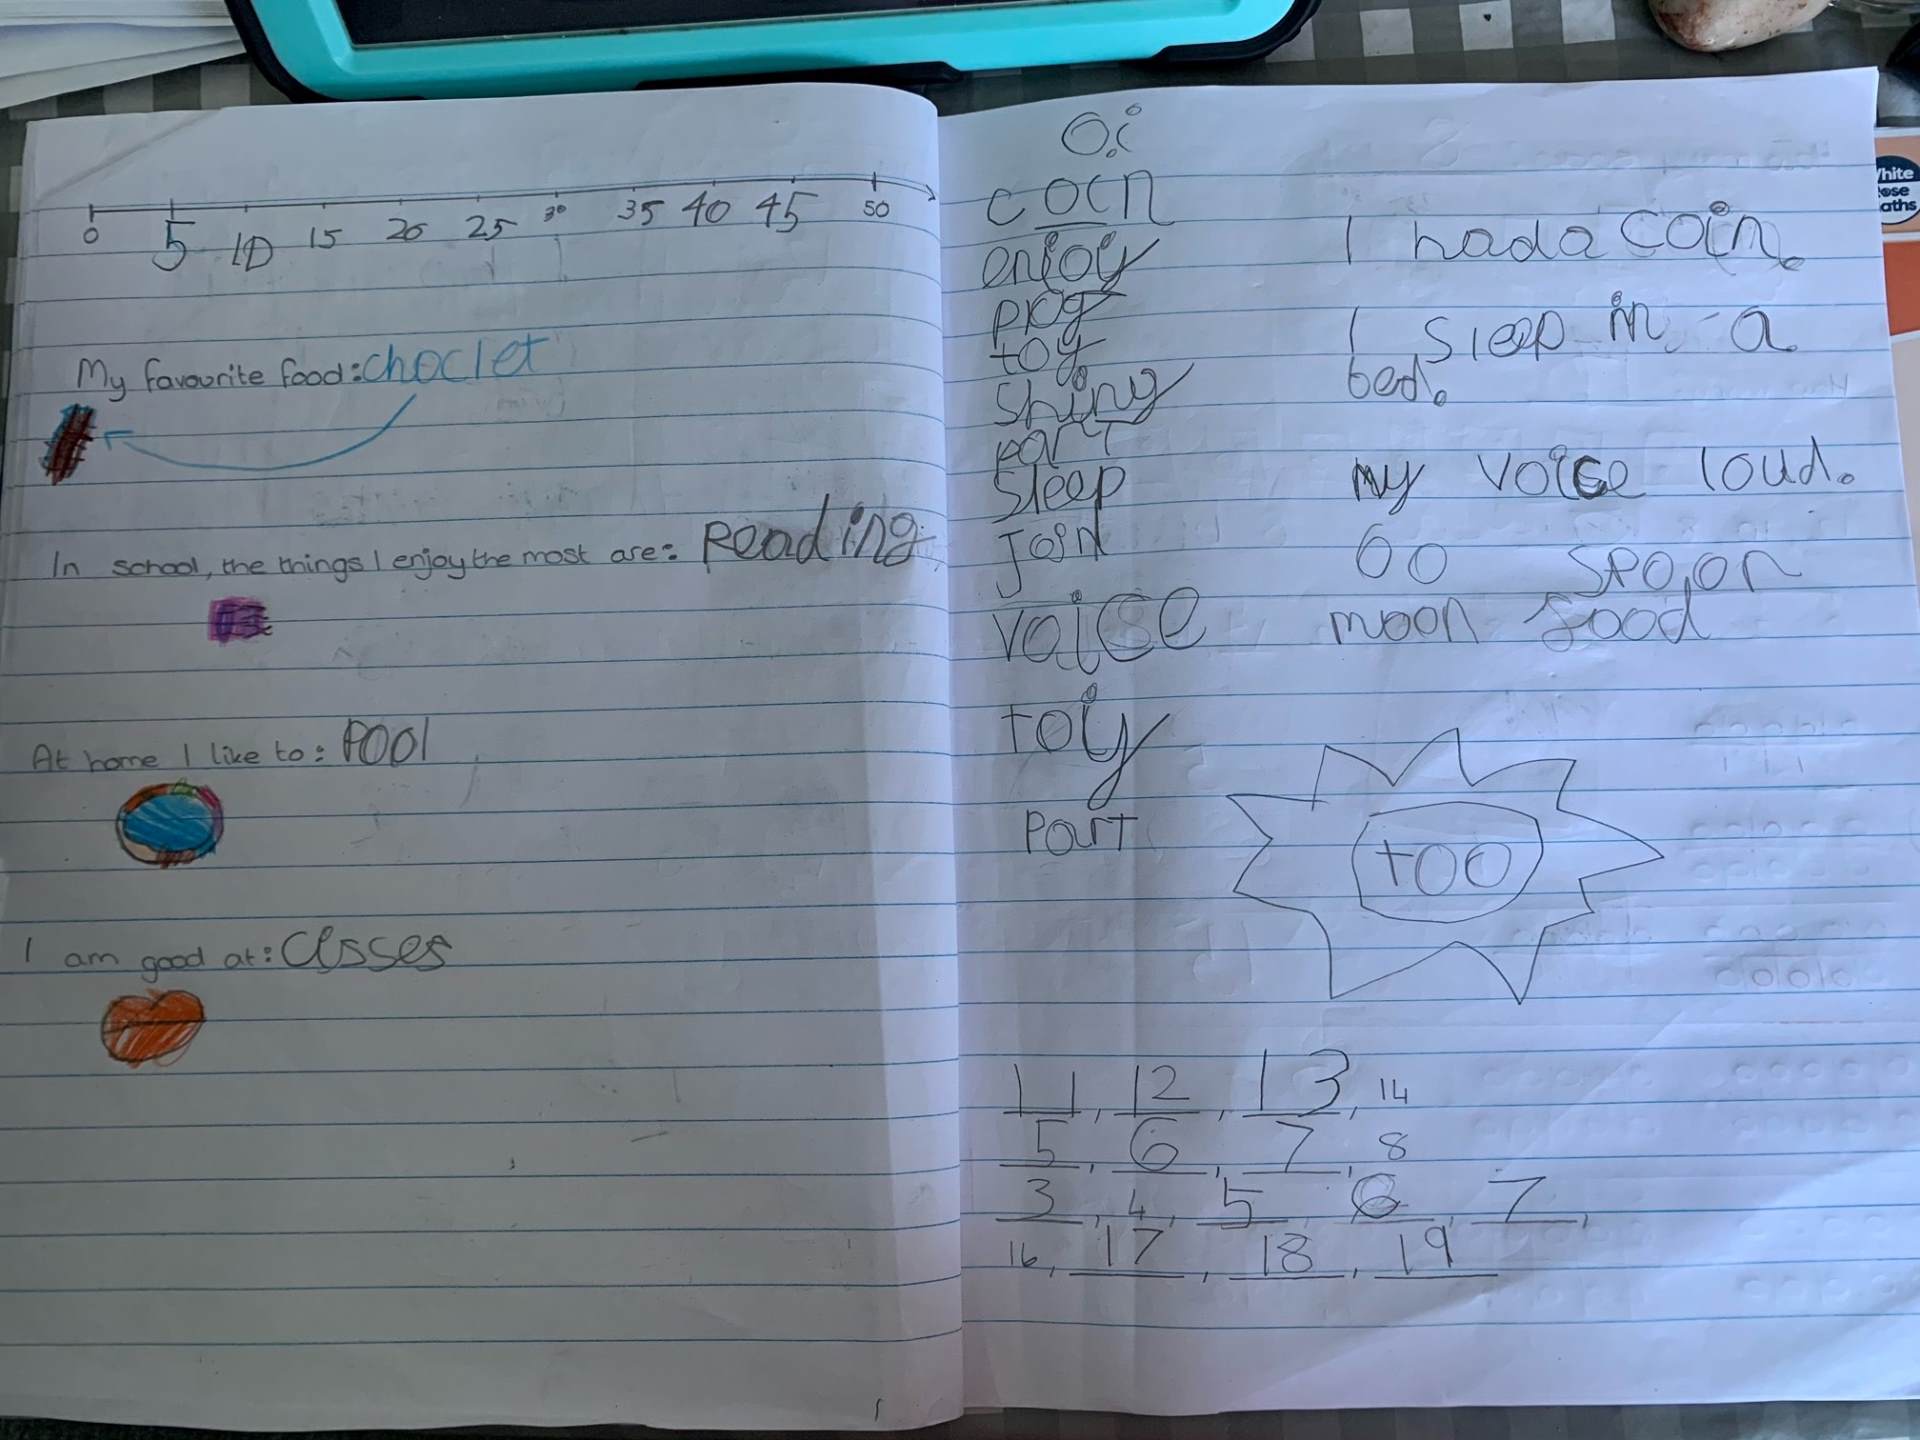 0 5 10 15 20 25 30 35 40 45 50
My favourite food: choclet
In school, the things I enjoy the most are: Reading
At home I like to: Pool
I am good at: Clsses
oi
coin
enjoy
toy
shiny
part
Sleep
join
voice
toiy
part
I had a coin.
I sleep in a
bed.
my voice loud.
oo spoon
moon food
too
11, 12, 13, 14
5, 6, 7, 8
3, 4, 5, 6, 7,
16, 17, 18, 19
White
Rose
Maths